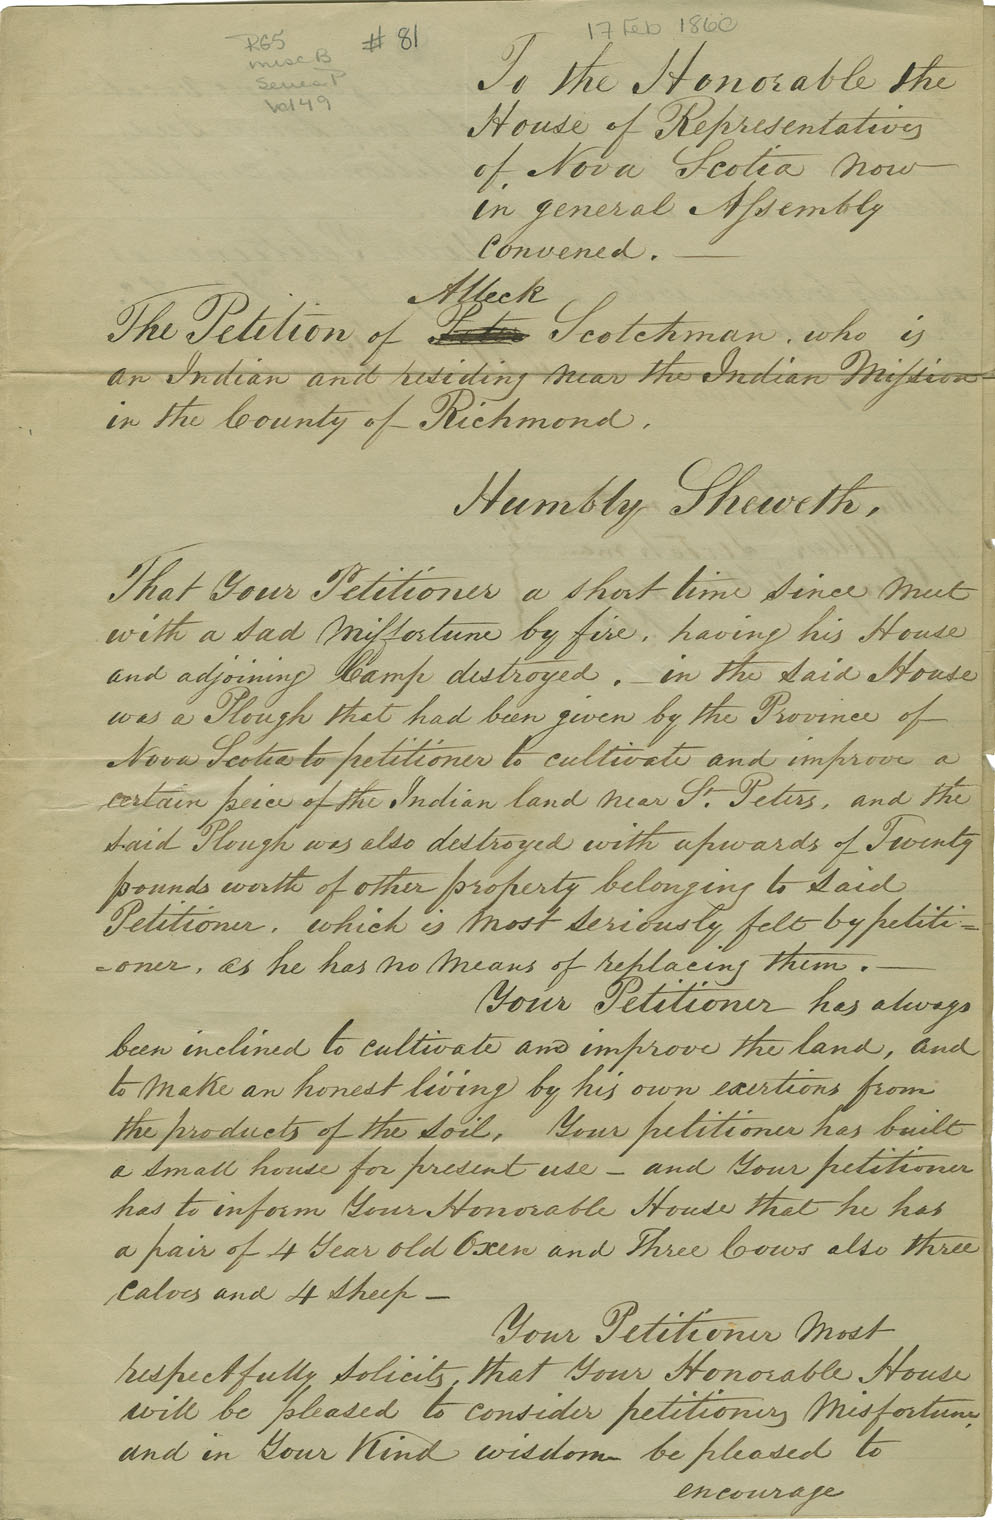 RG5
misc B
Series P
Vol 49
# 81
17 Feb 1860
To the Honorable the
House of Representatives
of Nova Scotia now
in general Assembly
convened. —
Alleck
The Petition of Peter Scotchman, who is
an Indian and residing near the Indian Mission
in the County of Richmond.
Humbly Sheweth,
That Your Petitioner a short time since meet
with a sad Misfortune by fire, having his House
and adjoining Camp destroyed. — in the said House
was a Plough that had been given by the Province of
Nova Scotia to petitioner to cultivate and improve a
certain peice of the Indian land near St. Peters, and the
said Plough was also destroyed with upwards of Twenty
pounds worth of other property belonging to said
Petitioner, which is most seriously felt by petiti=
=oner, as he has no means of replacing them. —
Your Petitioner has always
been inclined to cultivate and improve the land, and
to make an honest living by his own exertions from
the products of the soil, Your petitioner has built
a small house for present use — and Your petitioner
has to inform Your Honorable House that he has
a pair of 4 Year old Oxen and Three Cows also three
Calves and 4 sheep —
Your Petitioner Most
respectfully solicits, that Your Honorable House
will be pleased to consider petitioners Misfortune,
and in Your Kind wisdom be pleased to
encourage